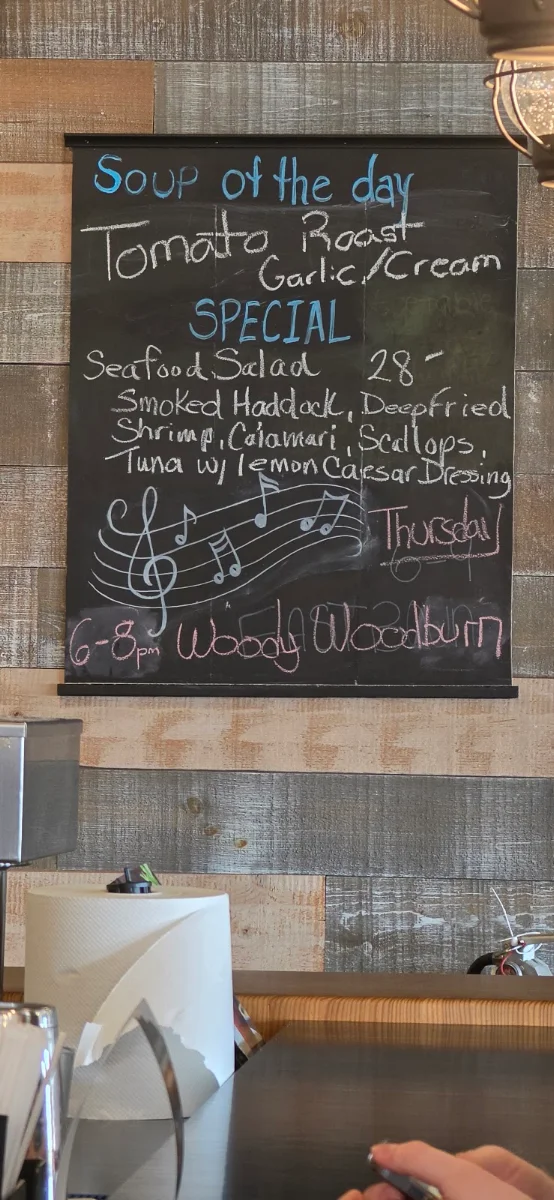 Soup of the day
Tomato Roast
Garlic/Cream
SPECIAL
Seafood Salad 28-
Smoked Haddock, Deepfried
Shrimp, Calamari, Scallops,
Tuna w/ lemon Caesar Dressing
Thursday
6-8pm Woody Woodburn